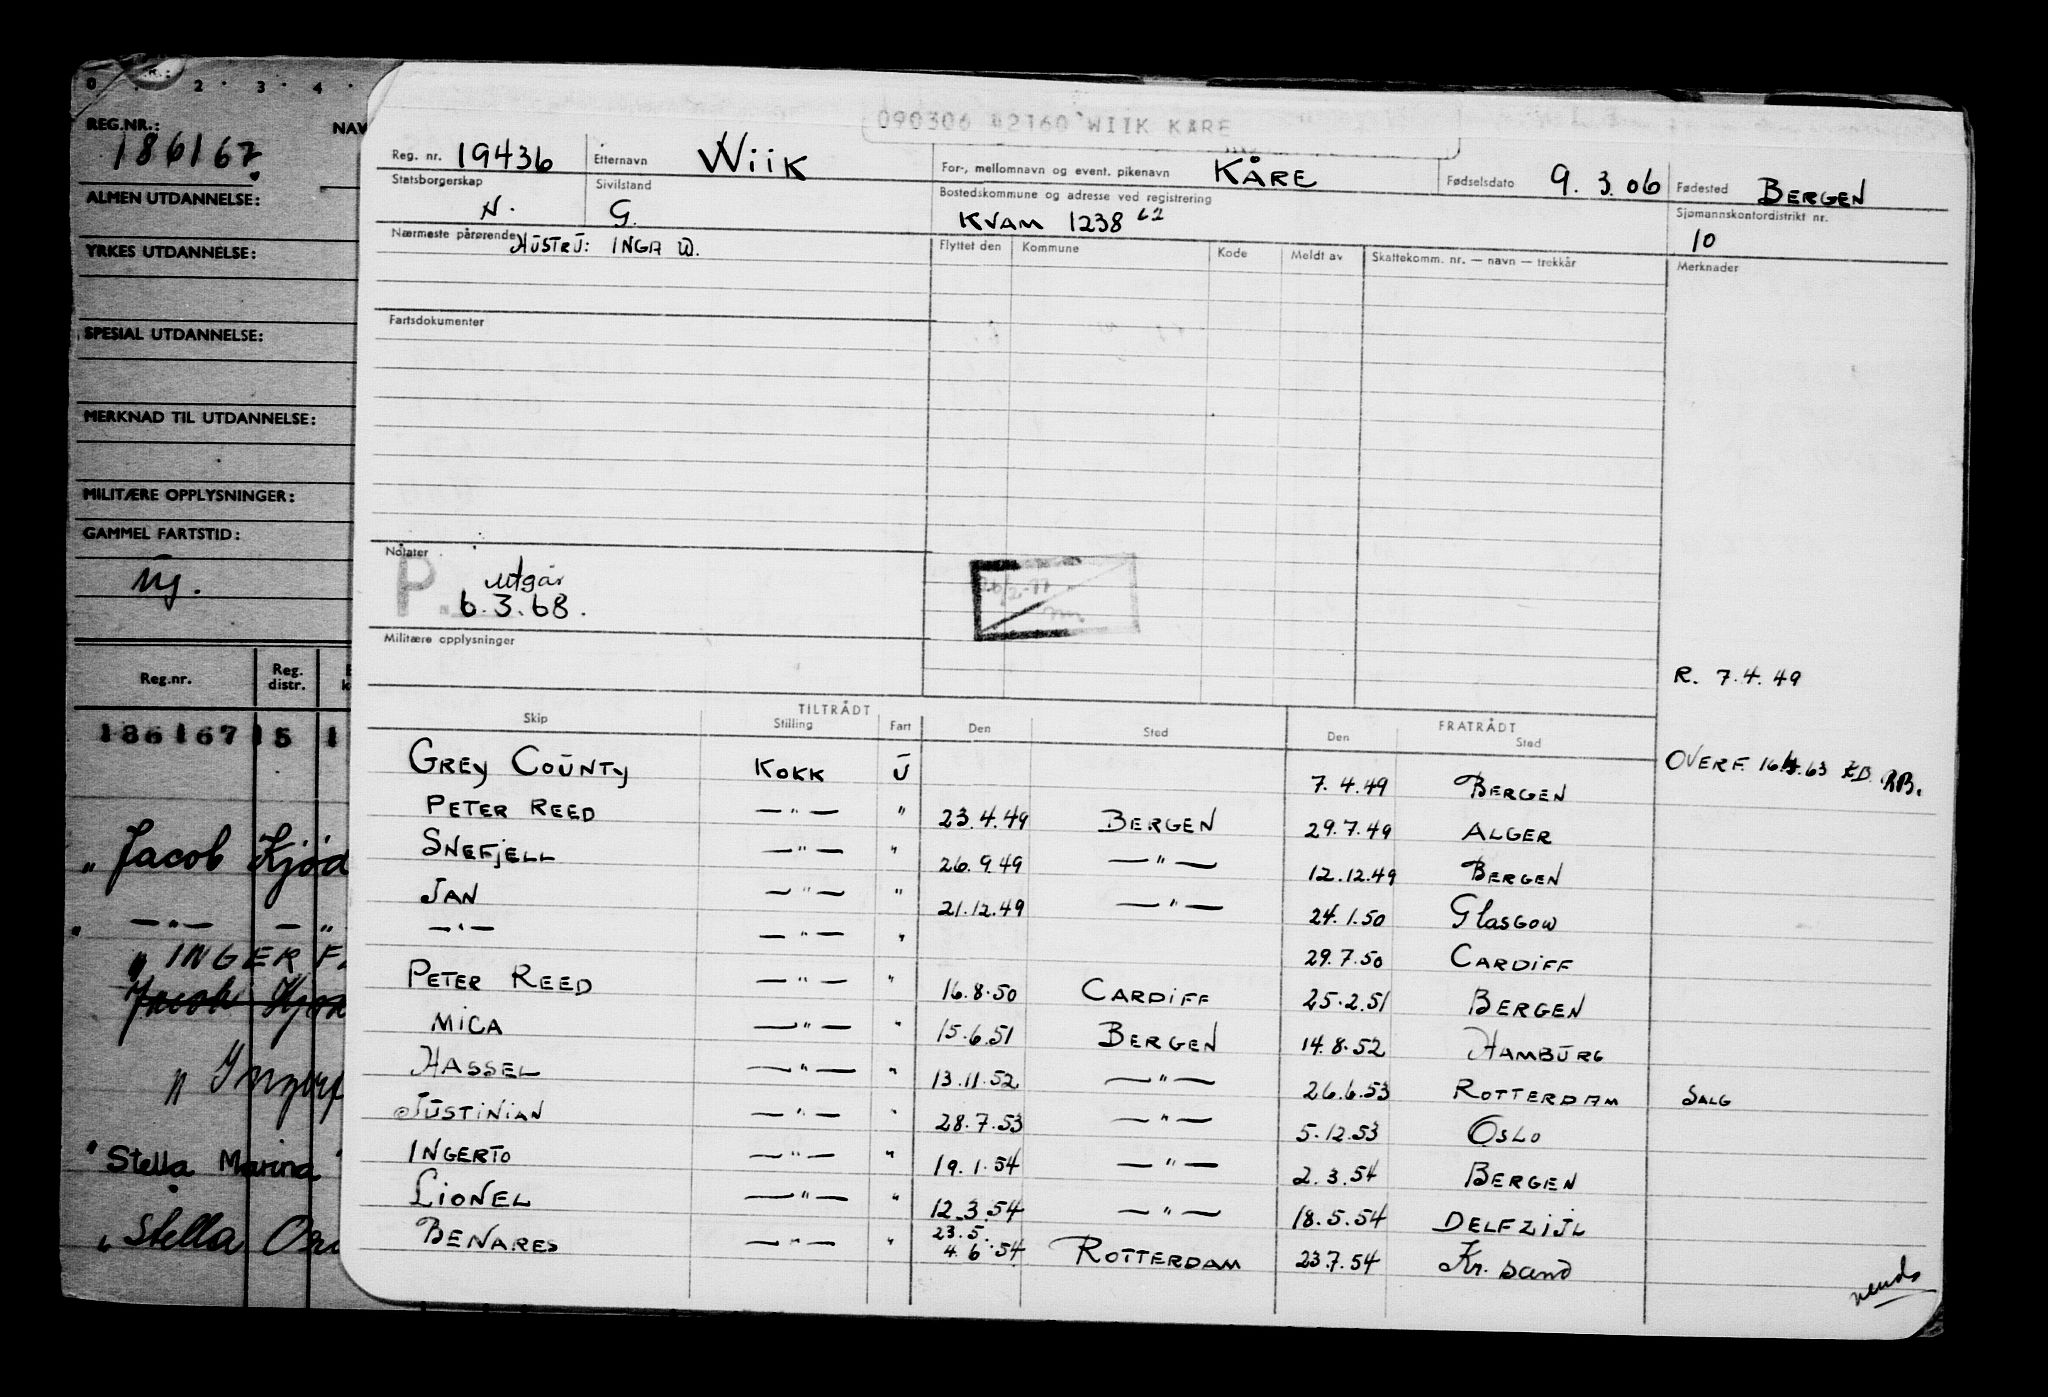 0 . . 2 . 3 . 4 .
REG.NR.:
186167
NAV
ALMEN UTDANNELSE:
YRKES UTDANNELSE:
SPESIAL UTDANNELSE:
MERKNAD TIL UTDANNELSE:
MILITÆRE OPPLYSNINGER:
GAMMEL FARTSTID:
Reg.nr. Reg. distr.
186167 15 1
" Jacob Kjød
" —"— — "
" INGER F
Jacob Kjød
"
" Stella Marina "
" Stella
090306 42160 WIIK KÅRE
Reg. nr. 19436 Etternavn WIIK For-, mellomnavn og event. pikenavn KÅRE Fødselsdato 9. 3. 06 Fødested BERGEN
Statsborgerskap N. Sivilstand G. Bostedskommune og adresse ved registrering KVAM 1238 62 Sjømannskontordistrikt nr. 10
Nærmeste pårørende HUSTRU: INGA W. Flyttet den Kommune Kode Meldt av Skattekomm. nr. — navn — trekkår Merknader
Fartsdokumenter
Notater
P. utgår
6.3.68.
Militære opplysninger
R. 7.4.49
TILTRÅDT FRATRÅDT
Skip Stilling Fart Den Sted Den Sted
GREY COUNTY KOKK U 7.4.49 BERGEN OVERF. 16.5.63 RB.
PETER REED —"— " 23.4.49 BERGEN 29.7.49 ALGER
SNEFJELL —"— " 26.9.49 —"— 12.12.49 BERGEN
JAN —"— " 21.12.49 —"— 24.1.50 GLASGOW
—"— —"— " 29.7.50 CARDIFF
PETER REED —"— " 16.8.50 CARDIFF 25.2.51 BERGEN
MICA —"— " 15.6.51 BERGEN 14.8.52 HAMBURG
HASSEL —"— " 13.11.52 —"— 26.6.53 ROTTERDAM SALG
JUSTINIAN —"— " 28.7.53 —"— 5.12.53 OSLO
INGERTO —"— " 19.1.54 —"— 2.3.54 BERGEN
LIONEL —"— " 12.3.54 —"— 18.5.54 DELFZIJL
BENARES —"— " 23.5. 4.6.54 ROTTERDAM 23.7.54 Kr. sand
vends